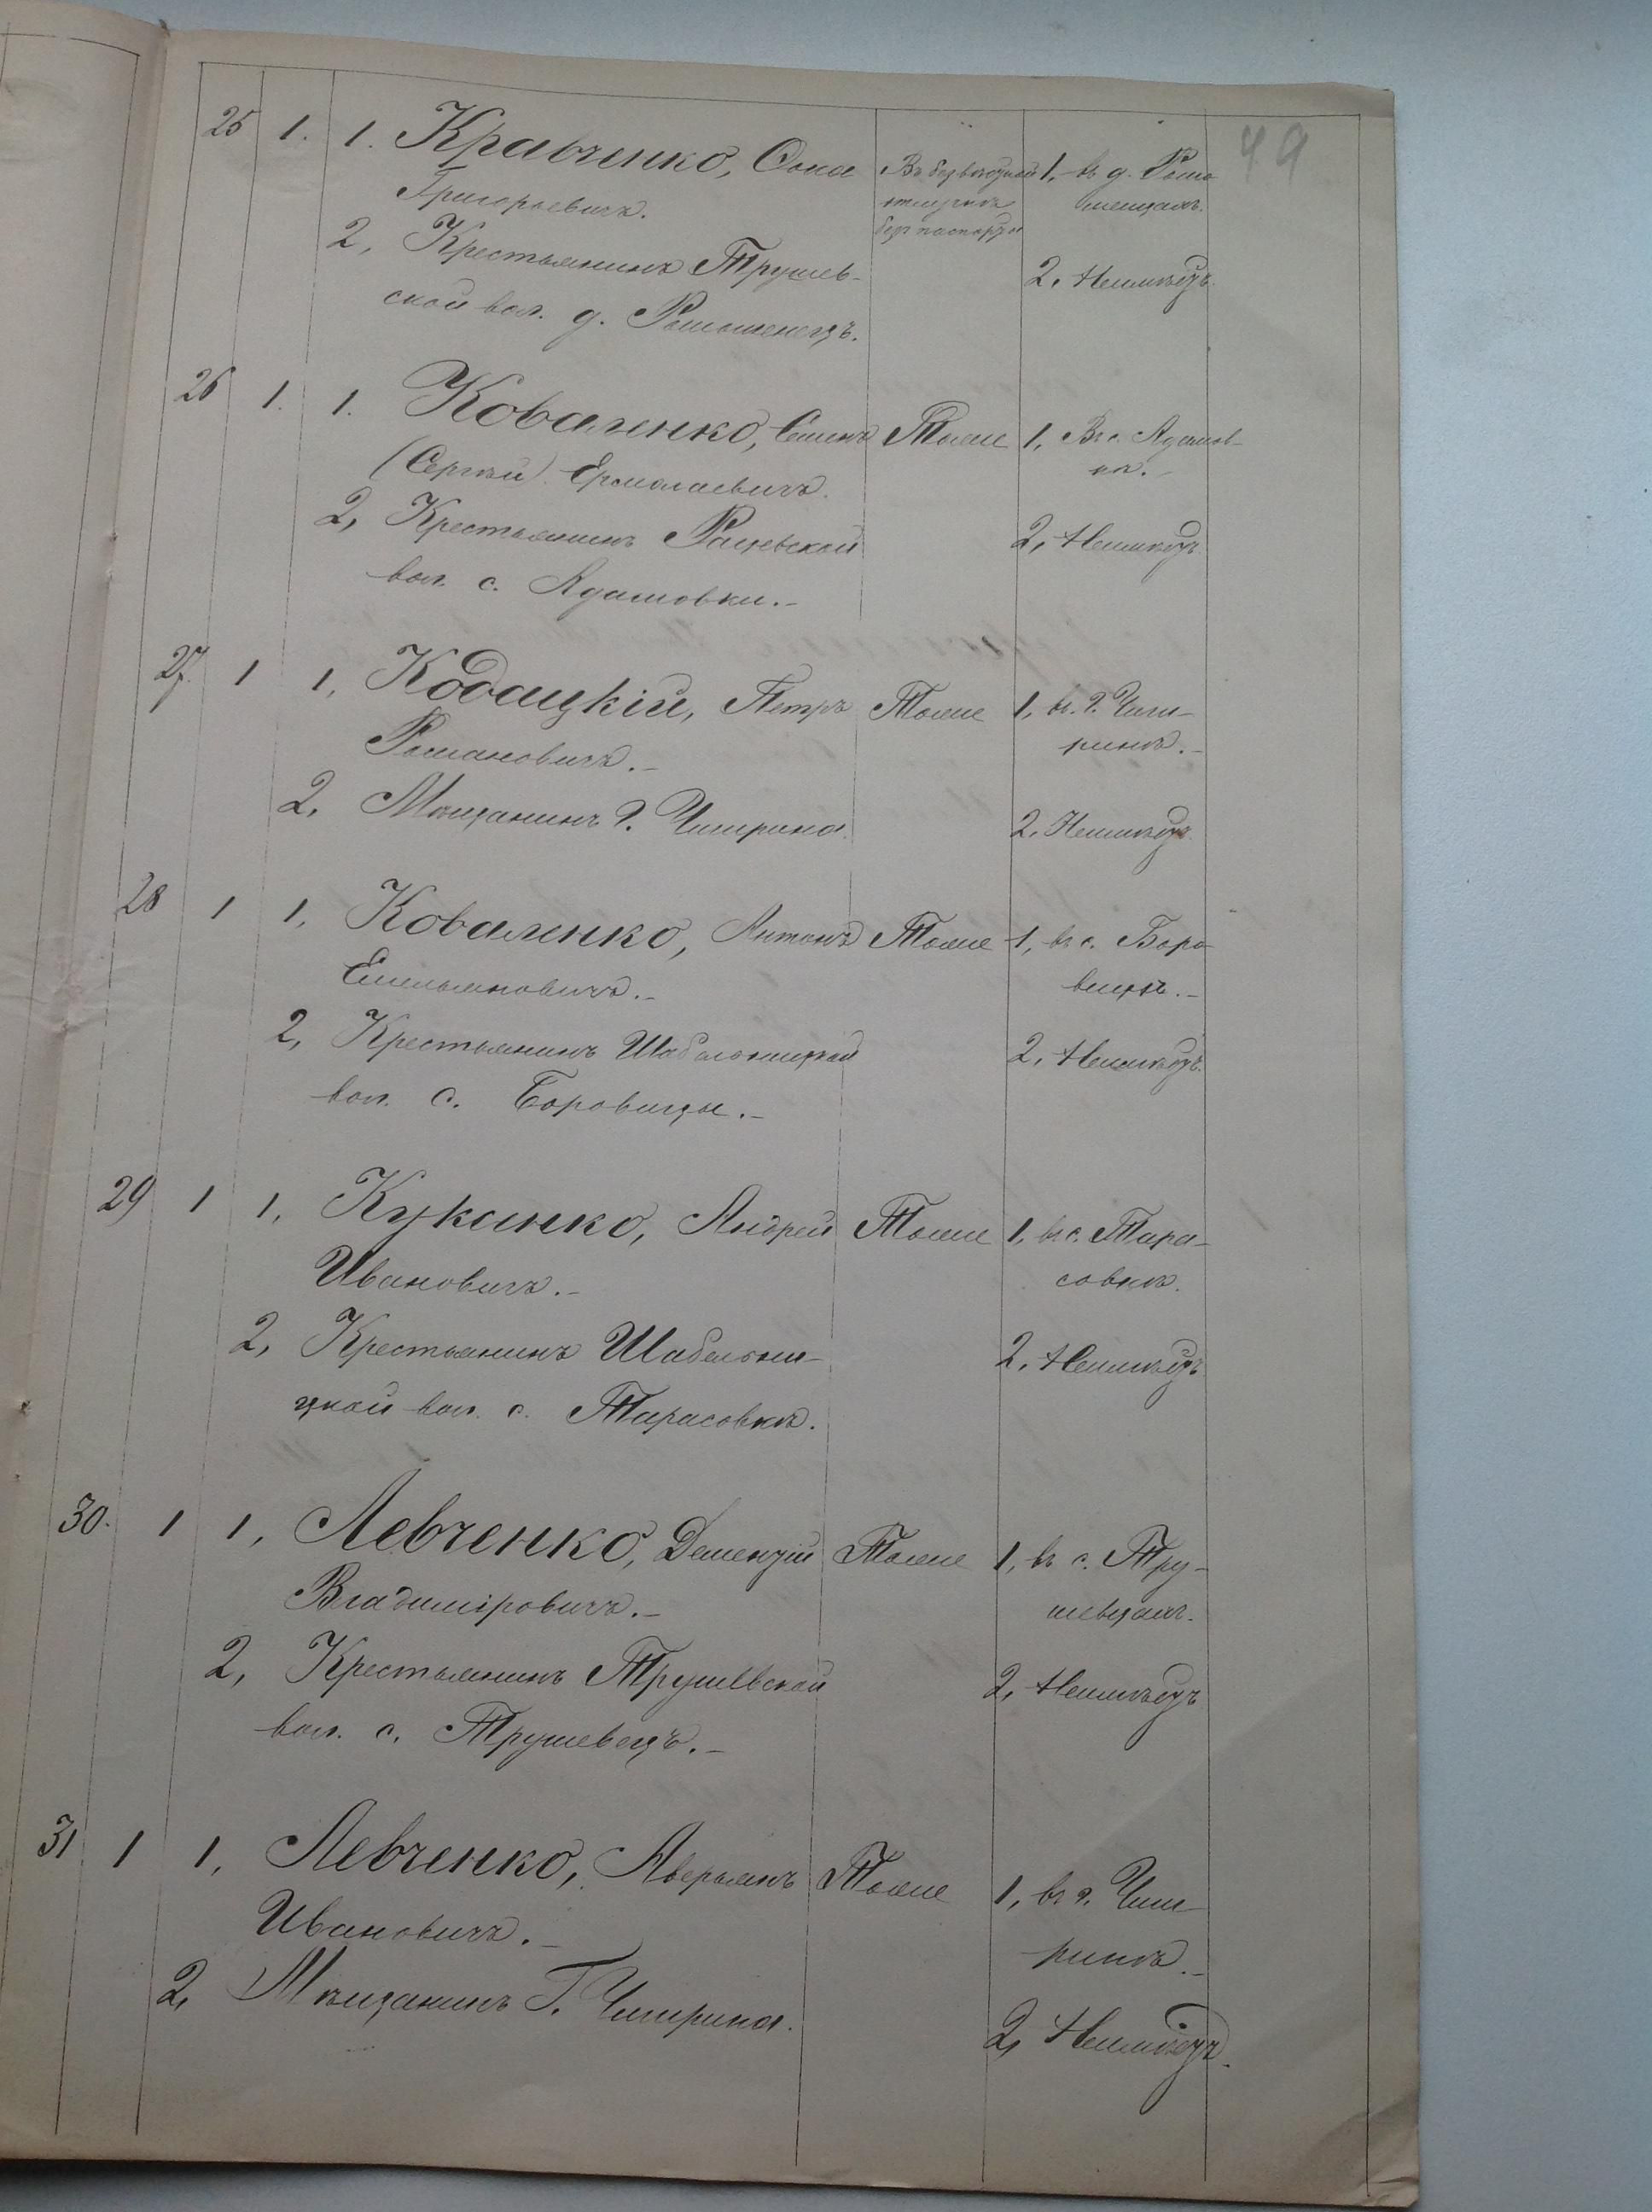 49
25 1. 1. Кравченко, Сока
Григорьевичъ.
2, Крестьянинъ Трушев-
ской вол. д. Рашошенецъ.
Въ безвѣстной
отлучкѣ
безъ паспорта
1, въ д. Рашо
шенцахъ.
2. Неимѣетъ.
26 1. 1. Коваленко, Семенъ
(Сергѣй) Ермолаевичъ.
2, Крестьянинъ Рацевской
вол. с. Адамовки.-
Тоже
1, Въ с. Адамов-
кѣ.-
2, Неимѣетъ
27. 1 1, Кодацкій, Петръ
Романовичъ.-
2. Мѣщанинъ г. Чигирина
Тоже
1, въ г. Чиги-
ринѣ.-
2, Неимѣетъ.
28 1 1, Коваленко, Антонъ
Емельяновичъ.-
2, Крестьянинъ Шабельницкой
вол. с. Боровицы.-
Тоже
1, въ с. Боро
вицѣ.-
2, Неимѣетъ.
29 1 1, Куканко, Андрей
Ивановичъ.-
2, Крестьянинъ Шабельни-
цкой вол. с. Тарасовки.
Тоже
1, въ с. Тара-
совкѣ.
2, Неимѣетъ
30. 1 1, Левченко, Дементій
Владиміровичъ.-
2, Крестьянинъ Трушевской
вол. с. Трушевецъ.-
Тоже
1, въ с. Тру-
шевцахъ.
2, Неимѣетъ
31 1 1, Левченко, Аверьянъ
Ивановичъ.-
2, Мѣщанинъ Г. Чигирина.
Тоже
1, въ г. Чиги-
ринѣ.-
2, Неимѣетъ.